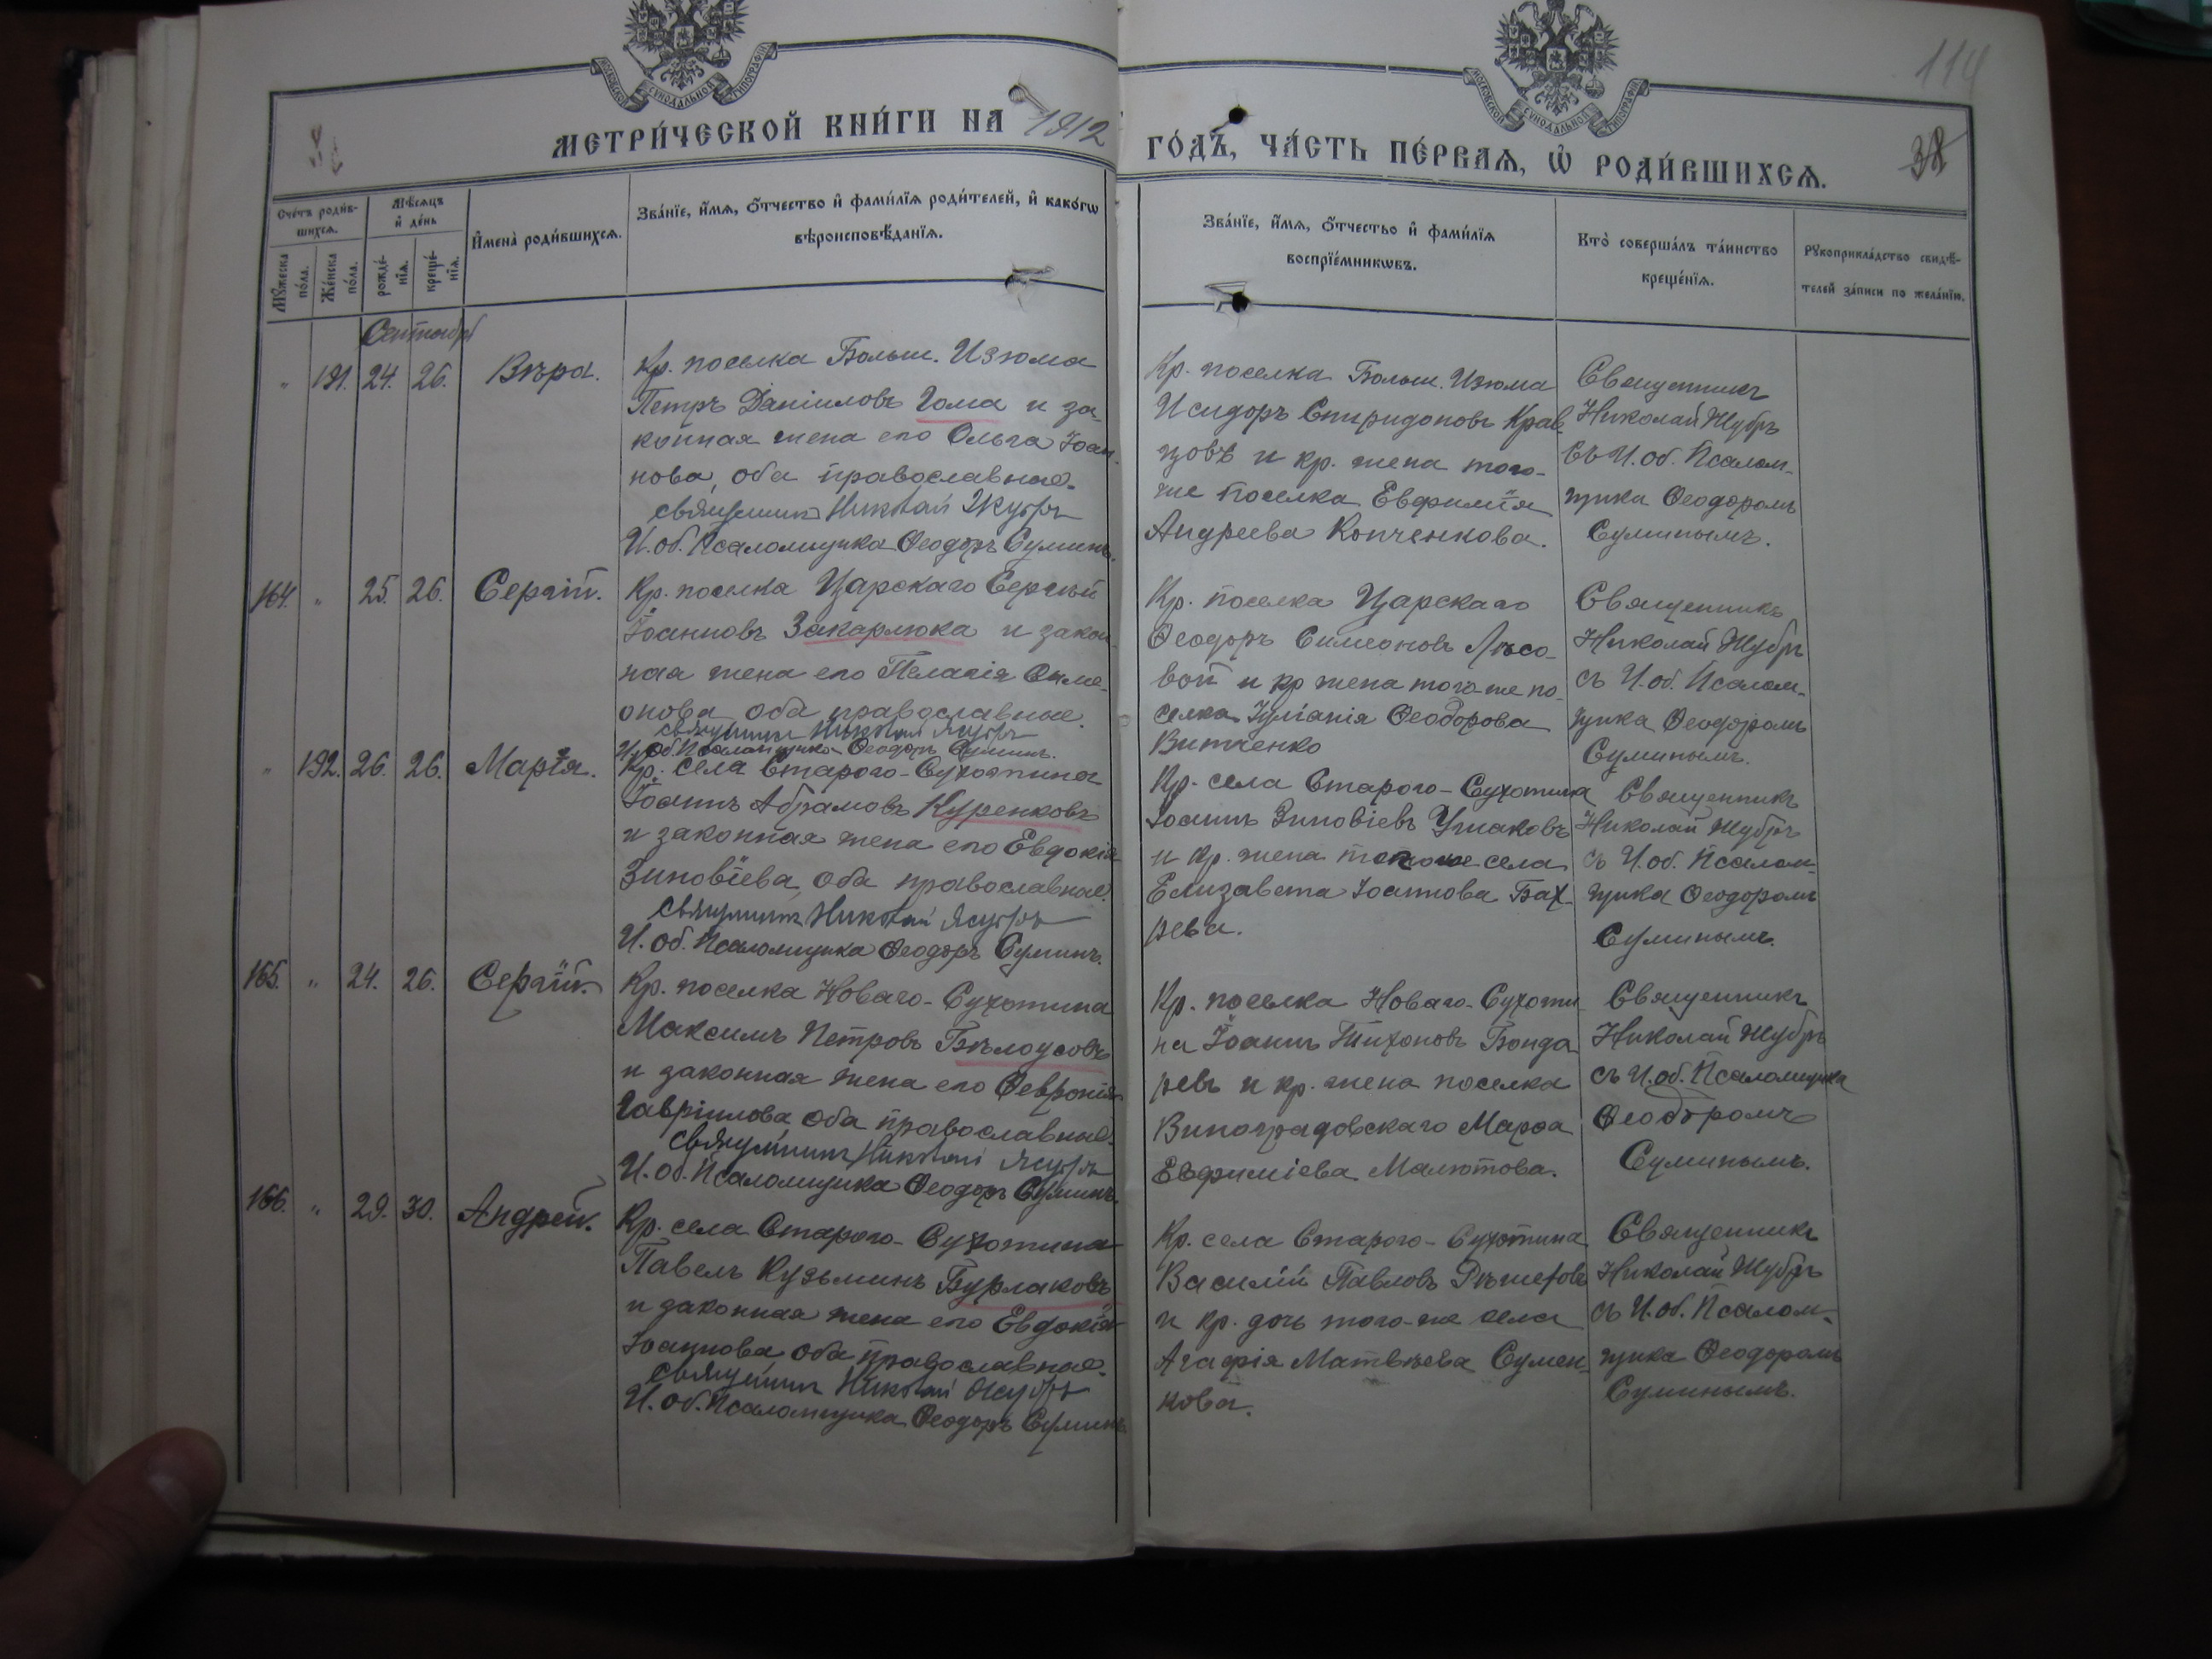 114
38
МОСКОВСКОЙ СУНОДАЛЬНОЙ ТИПОГРАФІИ
МОСКОВСКОЙ СУНОДАЛЬНОЙ ТИПОГРАФІИ
МЕТРИ́ЧЕСКОЙ КНИ́ГИ НА 1912 ГО́ДЪ, ЧА́СТЬ ПЕ́РВАѦ, Ѡ РОДИ́ВШИХСѦ.
Сче́тъ роди́в-
шихсѧ.
Мꙋ́жеска по́ла.
Же́нска по́ла.
Мѣ́сѧцъ
и҆ де́нь
рожде́-
нїѧ.
креще́-
нїѧ.
И҆мена̀ роди́вшихсѧ.
Зва́нїе, и҆́мѧ, о҆́тчество и҆ фами́лїѧ роди́телей, и҆ како́гѡ
вѣроисповѣ́данїѧ.
Зва́нїе, и҆́мѧ, о҆́тчестьо и҆ фами́лїѧ
воспрїе́мникѡвъ.
Кто̀ соверша́лъ та́инство
креще́нїѧ.
Рꙋкоприкла́дство свидѣ́-
телей за́писи по жела́нїю.
Сентябрь
" 191. 24. 26. Вѣра.
Кр. поселка Больш. Изюма
Петръ Даніиловъ Гома и за-
конная жена его Ольга Іоан-
нова, оба православные.
священникъ Николай Жубръ
И. об. Псаломщика Ѳеодоръ Суминъ.
Кр. поселка Больш. Изюма
Исидоръ Спиридоновъ Крав-
цовъ и кр. жена того-
же поселка Евфимія
Андреева Копченкова.
Священникъ
Николай Жубръ
съ И. об. Псалом-
щика Ѳеодоромъ
Суминымъ.
164. " 25. 26. Сергій.
Кр. поселка Царскаго Сергѣй
Іоанновъ Закарлюка и закон-
ная жена его Пелагія Симе-
онова оба православные.
священникъ Николай Жубръ
И. об. Псаломщика Ѳеодоръ Суминъ.
Кр. поселка Царскаго
Ѳеодоръ Симеоновъ Лѣсо-
вой и кр жена того-же по-
селка Іуліанія Ѳеодорова
Витченко
Священникъ
Николай Жубръ
съ И. об. Псалом-
щика Ѳеодоромъ
Суминымъ.
" 192. 26. 26. Марія.
Кр. села Старого-Сухотина
Іоаннъ Абрамовъ Куренковъ
и законная жена его Евдокія
Зиновіева, оба православные.
священникъ Николай Жубръ
И. об. Псаломщика Ѳеодоръ Суминъ.
Кр. села Старого-Сухотина
Іоаннъ Зиновіевъ Ушаковъ
и кр. жена того же села
Елизавета Іоаннова Бах-
рева.
Священникъ
Николай Жубръ
съ И. об. Псалом-
щика Ѳеодоромъ
Суминымъ.
165. " 24. 26. Сергій.
Кр. поселка Новаго-Сухотина
Максимъ Петровъ Бѣлоусовъ
и законная жена его Февронія
Гавріилова оба православные.
священникъ Николай Жубръ
И. об. Псаломщика Ѳеодоръ Суминъ.
Кр. поселка Новаго-Сухоти-
на Іоаннъ Тихоновъ Бонда-
ревъ и кр. жена поселка
Виноградовскаго Марѳа
Евфиміева Малютова.
Священникъ
Николай Жубръ
съ И. об. Псаломщика
Ѳеодоромъ
Суминымъ.
166. " 29. 30. Андрей.
Кр. села Старого-Сухотина
Павелъ Кузьминъ Бурлаковъ
и законная жена его Евдокія
Іоаннова оба православные.
священникъ Николай Жубръ
И. об. Псаломщика Ѳеодоръ Суминъ
Кр. села Старого-Сухотина
Василій Павловъ Рѣшетовъ
и кр. дочь того-же села
Агафія Матвѣева Сумен-
кова.
Священникъ
Николай Жубръ
съ И. об. Псалом-
щика Ѳеодоромъ
Суминымъ.